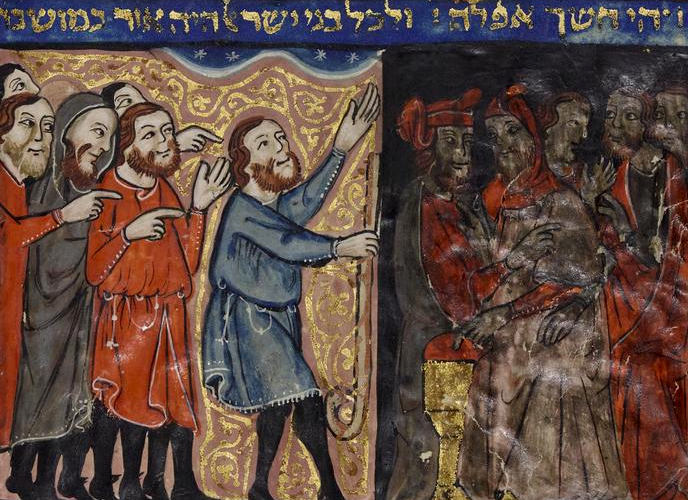 ויהי חשך אפלה ולכל בני ישראל היה אור במושבו